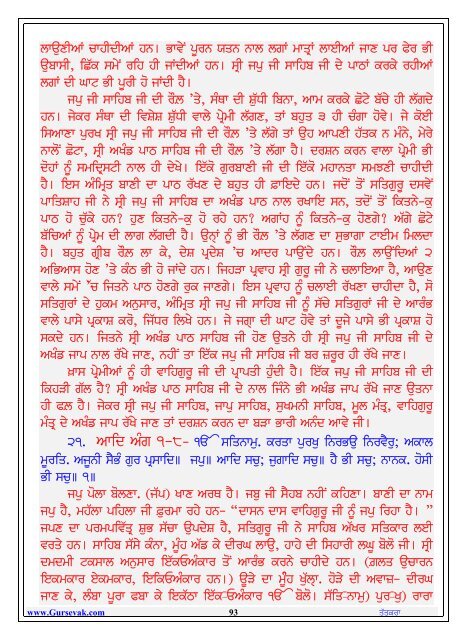 ਲਾਉਣੀਆਂ ਚਾਹੀਦੀਆਂ ਹਨ। ਭਾਵੇਂ ਪੂਰਨ ਯਤਨ ਨਾਲ ਲਗਾਂ ਮਾਤ੍ਰਾਂ ਲਾਈਆਂ ਜਾਣ ਪਰ ਫੇਰ ਭੀ
ਉਬਾਸੀ, ਛਿੱਕ ਸਮੇਂ ਰਹਿ ਹੀ ਜਾਂਦੀਆਂ ਹਨ। ਸ੍ਰੀ ਜਪੁ ਜੀ ਸਾਹਿਬ ਜੀ ਦੇ ਪਾਠਾਂ ਕਰਕੇ ਰਹੀਆਂ
ਲਗਾਂ ਦੀ ਘਾਟ ਭੀ ਪੂਰੀ ਹੋ ਜਾਂਦੀ ਹੈ।
ਜਪੁ ਜੀ ਸਾਹਿਬ ਜੀ ਦੀ ਰੌਲ਼ 'ਤੇ, ਸੰਥਾ ਦੀ ਸ਼ੁੱਧੀ ਬਿਨਾ, ਆਮ ਕਰਕੇ ਛੋਟੇ ਬੱਚੇ ਹੀ ਲੱਗਦੇ
ਹਨ। ਜੇਕਰ ਸੰਥਾ ਦੀ ਵਿਸ਼ੇਸ਼ ਸ਼ੁੱਧੀ ਵਾਲੇ ਪ੍ਰੇਮੀ ਲੱਗਣ, ਤਾਂ ਬਹੁਤ ੩ ਹੀ ਚੰਗਾ ਹੋਵੇ। ਜੇ ਕੋਈ
ਸਿਆਣਾ ਪੁਰਖ ਸ੍ਰੀ ਜਪੁ ਜੀ ਸਾਹਿਬ ਜੀ ਦੀ ਰੌਲ਼ 'ਤੇ ਲੱਗੇ ਤਾਂ ਉਹ ਆਪਣੀ ਹੱਤਕ ਨ ਮੰਨੇ, ਮੇਰੇ
ਨਾਲੋਂ ਛੋਟਾ, ਸ੍ਰੀ ਅਖੰਡ ਪਾਠ ਸਾਹਿਬ ਜੀ ਦੀ ਰੌਲ਼ 'ਤੇ ਲੱਗਾ ਹੈ। ਦਰਸ਼ਨ ਕਰਨ ਵਾਲਾ ਪ੍ਰੇਮੀ ਭੀ
ਦੋਹਾਂ ਨੂੰ ਸਮਦ੍ਰਿਸਟੀ ਨਾਲ ਹੀ ਦੇਖੇ। ਇੱਕੋ ਗੁਰਬਾਣੀ ਜੀ ਦੀ ਇੱਕੋ ਮਹਾਨਤਾ ਸਮਝਣੀ ਚਾਹੀਦੀ
ਹੈ। ਇਸ ਅੰਮ੍ਰਿਤ ਬਾਣੀ ਦਾ ਪਾਠ ਰੱਖਣ ਦੇ ਬਹੁਤ ਹੀ ਫ਼ਾਇਦੇ ਹਨ। ਜਦੋਂ ਤੋਂ ਸਤਿਗੁਰੂ ਦਸਵੇਂ
ਪਾਤਿਸ਼ਾਹ ਜੀ ਨੇ ਸ੍ਰੀ ਜਪੁ ਜੀ ਸਾਹਿਬ ਦਾ ਅਖੰਡ ਪਾਠ ਨਾਲ ਰਖਾਇ ਸਨ, ਤਦੋਂ ਤੋਂ ਕਿਤਨੇ-ਕੁ
ਪਾਠ ਹੋ ਚੁੱਕੇ ਹਨ? ਹੁਣ ਕਿਤਨੇ-ਕੁ ਹੋ ਰਹੇ ਹਨ? ਅਗਾਂਹ ਨੂੰ ਕਿਤਨੇ-ਕੁ ਹੋਣਗੇ? ਅੱਗੇ ਛੋਟੇ
ਬੱਚਿਆਂ ਨੂੰ ਪ੍ਰੇਮ ਦੀ ਲਾਗ ਲੱਗਦੀ ਹੈ। ਉਨ੍ਹਾਂ ਨੂੰ ਭੀ ਰੌਲ਼ 'ਤੇ ਲੱਗਣ ਦਾ ਸੁਭਾਗਾ ਟਾਈਮ ਮਿਲਦਾ
ਹੈ। ਬਹੁਤ ਗ੍ਰੀਬ ਰੌਲ਼ ਲਾ ਕੇ, ਦੇਸ਼ ਪ੍ਰਦੇਸ਼ 'ਚ ਆਦਰ ਪਾਉਂਦੇ ਹਨ। ਰੌਲ਼ ਲਾਉਂਦਿਆਂ ੨
ਅਭਿਆਸ ਹੋਣ 'ਤੇ ਕੰਠ ਭੀ ਹੋ ਜਾਂਦੇ ਹਨ। ਜਿਹੜਾ ਪ੍ਰਵਾਹ ਸ੍ਰੀ ਗੁਰੂ ਜੀ ਨੇ ਚਲਾਇਆ ਹੈ, ਆਉਣ
ਵਾਲੇ ਸਮੇਂ 'ਚ ਜਿਤਨੇ ਪਾਠ ਹੋਣਗੇ ਰੁਕ ਜਾਣਗੇ। ਇਸ ਪ੍ਰਵਾਹ ਨੂੰ ਚਲਾਈ ਰੱਖਣਾ ਚਾਹੀਦਾ ਹੈ, ਸੋ
ਸਤਿਗੁਰਾਂ ਦੇ ਹੁਕਮ ਅਨੁਸਾਰ, ਅੰਮ੍ਰਿਤ ਸ੍ਰੀ ਜਪੁ ਜੀ ਸਾਹਿਬ ਜੀ ਨੂੰ ਸੱਚੇ ਸਤਿਗੁਰਾਂ ਜੀ ਦੇ ਆਰੰਭ
ਵਾਲੇ ਪਾਸੇ ਪ੍ਰਕਾਸ਼ ਕਰੋ, ਜਿੱਧਰ ਲਿਖੇ ਹਨ। ਜੇ ਜਗ੍ਹਾ ਦੀ ਘਾਟ ਹੋਵੇ ਤਾਂ ਦੂਜੇ ਪਾਸੇ ਭੀ ਪ੍ਰਕਾਸ਼ ਹੋ
ਸਕਦੇ ਹਨ। ਜਿਤਨੇ ਸ੍ਰੀ ਅਖੰਡ ਪਾਠ ਸਾਹਿਬ ਜੀ ਹੋਣ ਉਤਨੇ ਹੀ ਸ੍ਰੀ ਜਪੁ ਜੀ ਸਾਹਿਬ ਜੀ ਦੇ
ਅਖੰਡ ਜਾਪ ਨਾਲ ਰੱਖੇ ਜਾਣ, ਨਹੀਂ ਤਾਂ ਇੱਕ ਜਪੁ ਜੀ ਸਾਹਿਬ ਜੀ ਬਰ ਜ਼ਰੂਰ ਹੀ ਰੱਖੇ ਜਾਣ।
ਖ਼ਾਸ ਪ੍ਰੇਮੀਆਂ ਨੂੰ ਹੀ ਵਾਹਿਗੁਰੂ ਜੀ ਦੀ ਪ੍ਰਾਪਤੀ ਹੁੰਦੀ ਹੈ। ਇੱਕ ਜਪੁ ਜੀ ਸਾਹਿਬ ਜੀ ਦੀ
ਕਿਹੜੀ ਗੱਲ ਹੈ? ਸ੍ਰੀ ਅਖੰਡ ਪਾਠ ਸਾਹਿਬ ਜੀ ਦੇ ਨਾਲ ਜਿੰਨੇ ਭੀ ਅਖੰਡ ਜਾਪ ਰੱਖੇ ਜਾਣ ਉਤਨਾ
ਹੀ ਫਲ਼ ਹੈ। ਜੇਕਰ ਸ੍ਰੀ ਜਪੁ ਜੀ ਸਾਹਿਬ, ਜਾਪੁ ਸਾਹਿਬ, ਸੁਖਮਨੀ ਸਾਹਿਬ, ਮੂਲ ਮੰਤ੍ਰ, ਵਾਹਿਗੁਰੂ
ਮੰਤ੍ਰ ਦੇ ਅਖੰਡ ਜਾਪ ਰੱਖੇ ਜਾਣ ਤਾਂ ਦਰਸ਼ਨ ਕਰਨ ਦਾ ਬੜਾ ਭਾਰੀ ਅਨੰਦ ਆਵੇ ਜੀ।
੨੧. ਆਦਿ ਅੰਗ ੧-੮- ੴ ਸਤਿਨਾਮੁ. ਕਰਤਾ ਪੁਰਖੁ ਨਿਰਭਉ ਨਿਰਵੈਰੁ; ਅਕਾਲ
ਮੂਰਤਿ. ਅਜੂਨੀ ਸੈਭੰ ਗੁਰ ਪ੍ਰਸਾਦਿ॥ ਜਪੁ॥ ਆਦਿ ਸਚੁ; ਜੁਗਾਦਿ ਸਚੁ॥ ਹੈ ਭੀ ਸਚੁ; ਨਾਨਕ. ਹੋਸੀ
ਭੀ ਸਚੁ॥ ੧॥
ਜਪੁ ਪੋਲਾ ਬੋਲਣਾ. (ਜੱਪ) ਖਾਣ ਅਰਥ ਹੈ। ਜਬੁ ਜੀ ਸੈਹਬ ਨਹੀਂ ਕਹਿਣਾ। ਬਾਣੀ ਦਾ ਨਾਮ
ਜਪੁ ਹੈ, ਮਹੱਲਾ ਪਹਿਲਾ ਜੀ ਫ਼ੁਰਮਾ ਰਹੇ ਹਨ- "ਦਾਸਨ ਦਾਸ ਵਾਹਿਗੁਰੂ ਜੀ ਨੂੰ ਜਪੁ ਰਿਹਾ ਹੈ। "
ਜਪਣ ਦਾ ਪਰਮਪਵਿੱਤ੍ਰ ਸ਼ੁਭ ਸੱਚਾ ਉਪਦੇਸ਼ ਹੈ, ਸਤਿਗੁਰੂ ਜੀ ਨੇ ਸਾਹਿਬ ਅੱਖਰ ਸਤਿਕਾਰ ਲਈ
ਵਰਤੇ ਹਨ। ਸਾਹਿਬ ਸੱਸੇ ਕੰਨਾ, ਮੂੰਹ ਅੱਡ ਕੇ ਦੀਰਘ ਲਾਉ, ਹਾਹੇ ਦੀ ਸਿਹਾਰੀ ਲਘੂ ਬੋਲੋ ਜੀ। ਸ੍ਰੀ
ਦਮਦਮੀ ਟਕਸਾਲ ਅਨੁਸਾਰ ਇੱਕਓਅੰਕਾਰ ਤੋਂ ਆਰੰਭ ਕਰਨੇ ਚਾਹੀਦੇ ਹਨ। (ਗ਼ਲਤ ਉਚਾਰਨ
ਇਕਮਕਾਰ ਏਕਮਕਾਰ, ਇਕਿਓਅੰਕਾਰ ਹਨ।) ਊੜੇ ਦਾ ਮੂੰਹ ਖੁੱਲ੍ਹਾ. ਹੋੜੇ ਦੀ ਅਵਾਜ਼- ਦੀਰਘ
ਜਾਣ ਕੇ, ਲੰਬਾ ਪੂਰਾ ਫਬਾ ਕੇ ਇਕੱਠਾ ਇੱਕ-ਓਅੰਕਾਰ ੴ ਬੋਲੋ। ਸੱਤਿ-ਨਾਮੁ) ਪੁਰ-ਖੁ) ਰਾਰਾ
www.Gursevak.com 93 ਤੱਤਕਰਾ